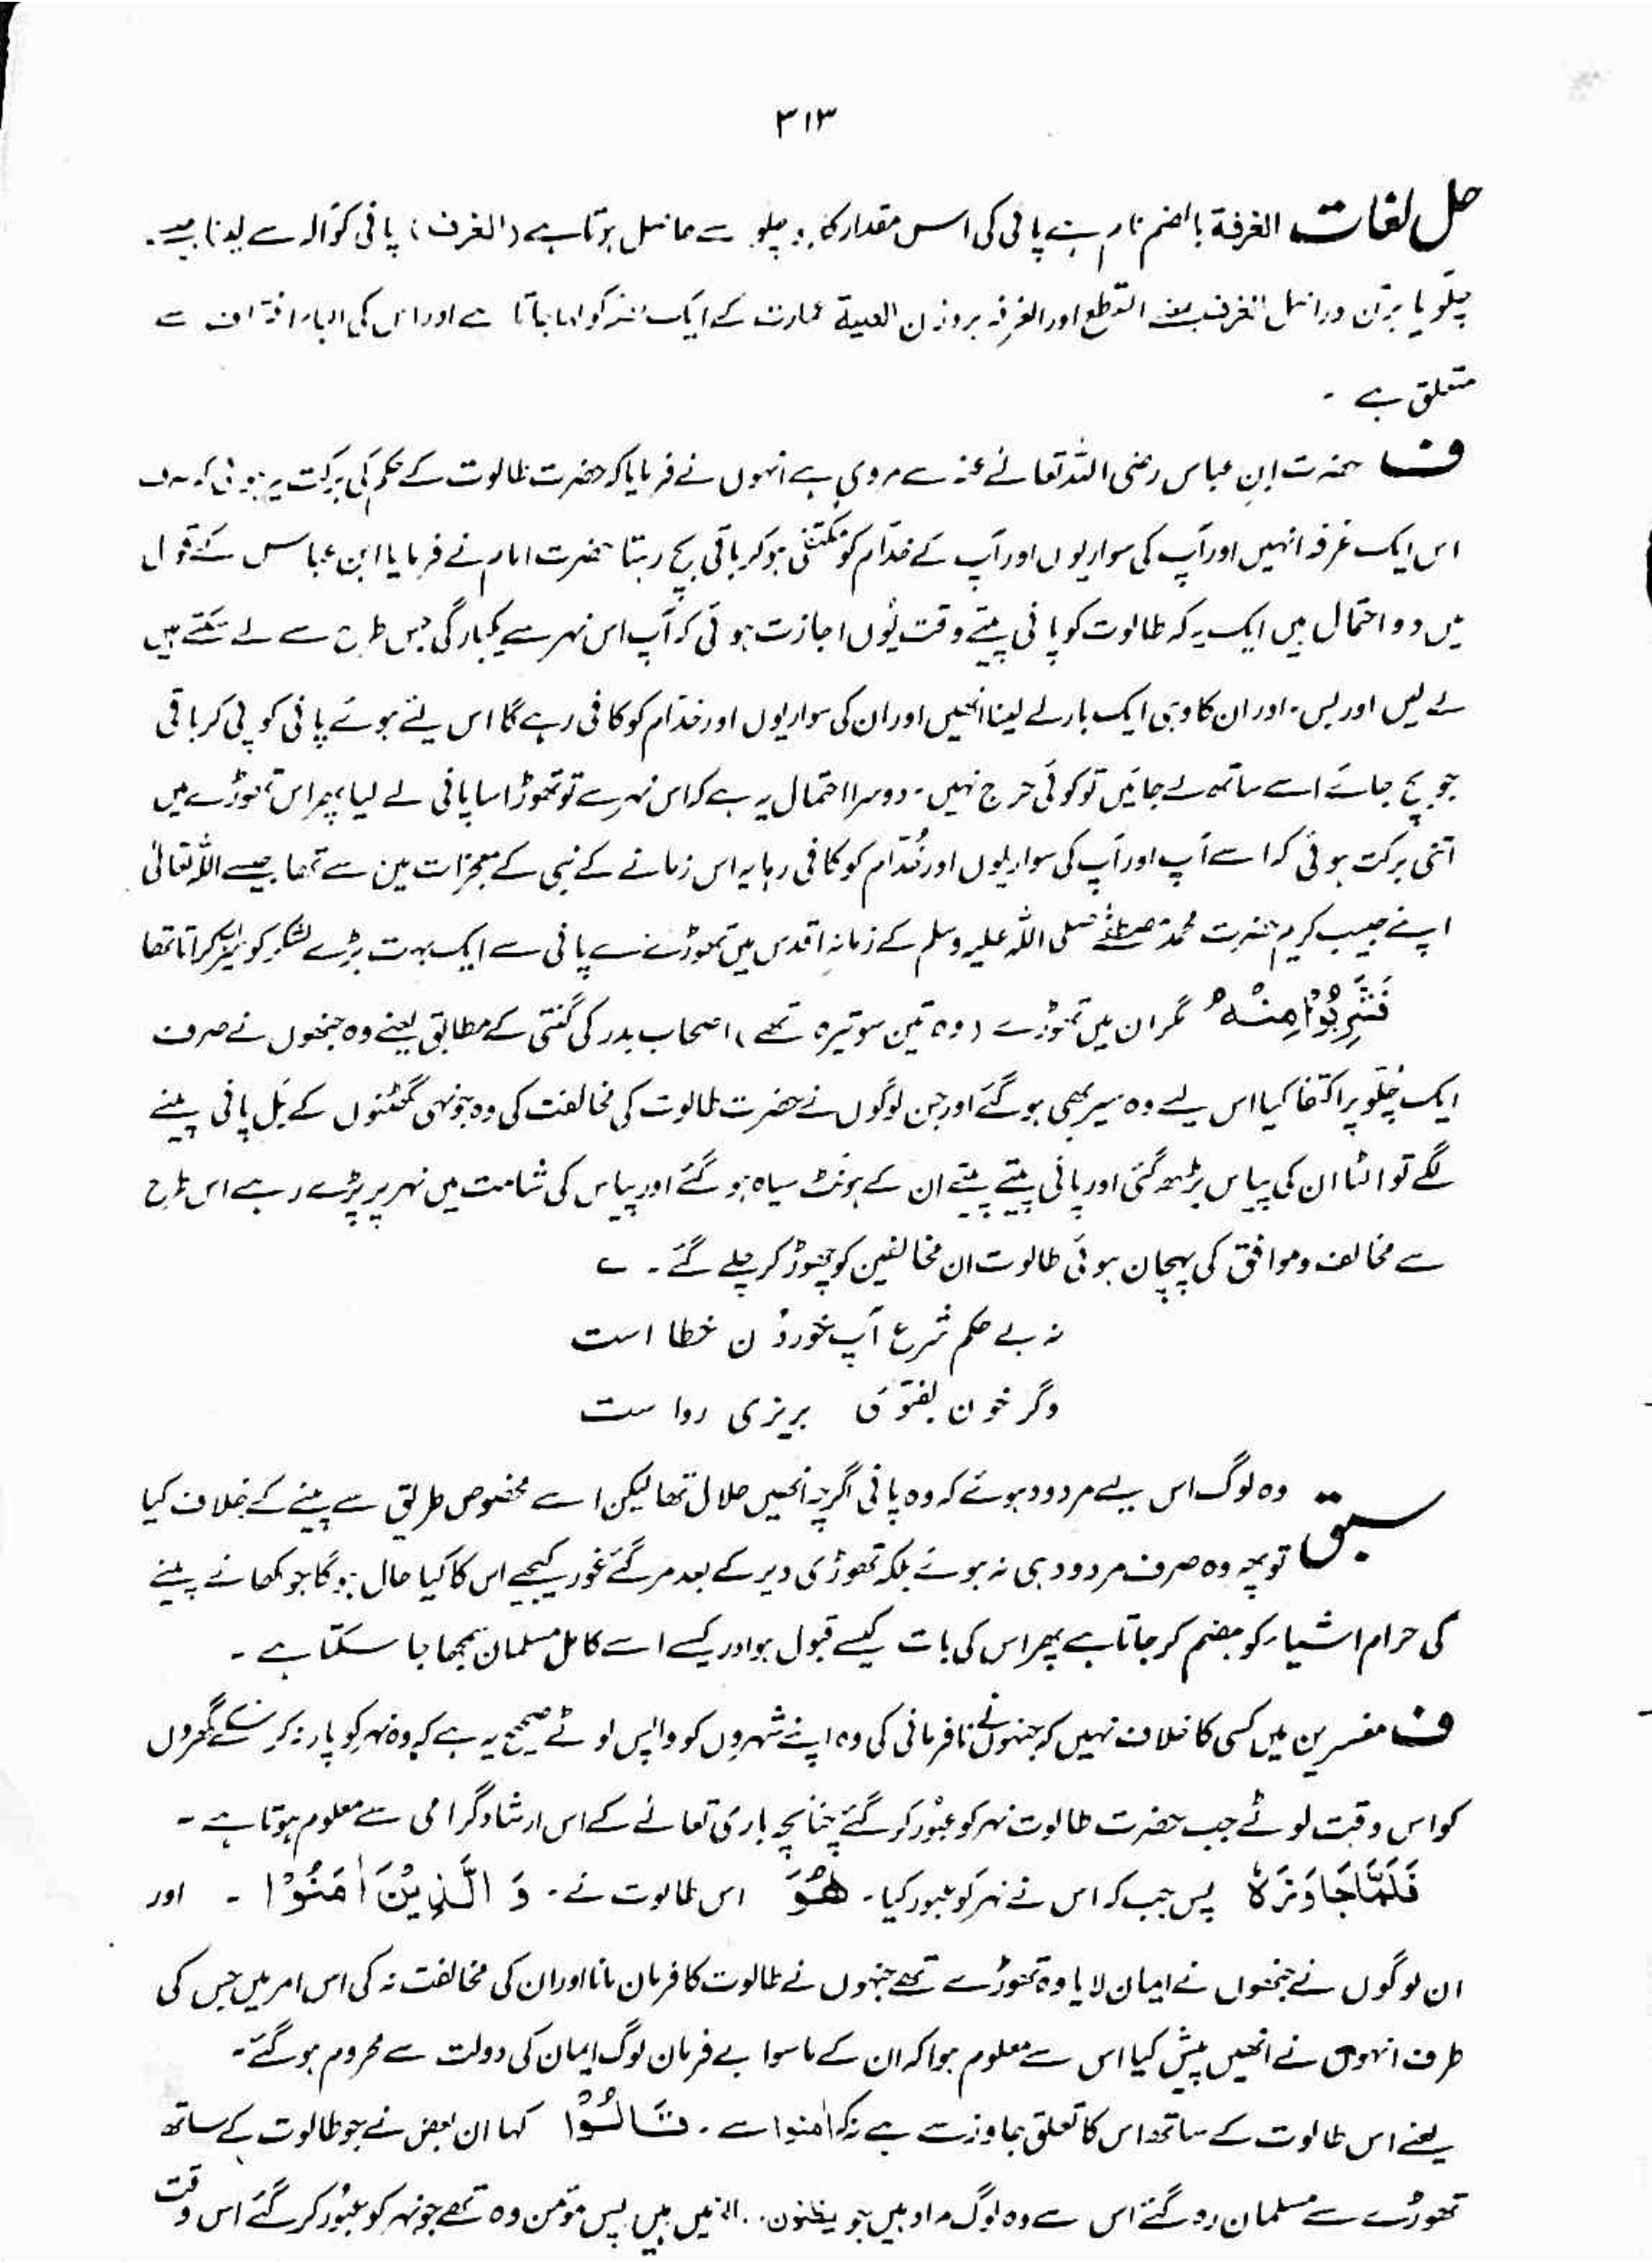 ۳۱۳
حل لغات الغرفۃ بالضم نام ہے پانی کی اس مقدار کا جو چلو سے حاصل ہوتا ہے (الغرف) پانی کو آلہ سے لینا جیسے۔
چلّو یا برتن دراصل الغرف بمعنے القطع اور الغرفہ بروزن العیبۃ عمارت کے ایک کو کہا جاتا ہے اور اس کی سے
متعلق ہے ۔
ف حضرت ابن عباس رضی اللہ تعالےٰ عنہ سے مروی ہے انہوں نے فرمایا کہ حضرت طالوت کے حکم کی برکت یہ ہوئی کہ صرف
اس ایک غرفہ انہیں اور آپ کی سواریوں اور آپ کے خدّام کو مکتفی ہو کر باقی بچ رہتا حضرت امام نے فرمایا ابن عباس کے قول
میں دو احتمال ہیں ایک یہ کہ طالوت کو پانی پیتے وقت یُوں اجازت ہوئی کہ آپ اس نہر سے یکبارگی جس طرح سے لے سکتے ہیں
لے لیں اور بس ۔ اور ان کا وہی ایک بار لے لینا انھیں اور ان کی سواریوں اور خدّام کو کافی رہے گا اس لئے ہوئے پانی کو پی کر باقی
جو بچ جائے اسے ساتھ لے جائیں تو کوئی حرج نہیں ۔ دوسرا احتمال یہ ہے کہ اس نہر سے تو تھوڑا سا پانی لے لیا پھر اس تھوڑے میں
اتنی برکت ہوئی کہ اسے آپ اور آپ کی سواریوں اور خُدّام کو کافی رہا یہ اس زمانے کے نبی کے معجزات مین سے تھا جیسے اللہ تعالیٰ
اپنے حبیب کریم حضرت محمد مصطفےٰ صلی اللہ علیہ وسلم کے زمانۂ اقدس میں تھوڑے سے پانی سے ایک بہت بڑے لشکر کو سیر کراتا تھا
فَشَرِبُوْا مِنْهُ مگر ان میں تھوڑے (وہ تین سو تیرہ تھے) اصحاب بدر کی گنتی کے مطابق یعنے وہ جنھوں نے صرف
ایک چُلّو پر اکتفا کیا اس لیے وہ سیر بھی ہو گئے اور جن لوگوں نے حضرت طالوت کی مخالفت کی وہ جونہی گھٹنوں کے بَل پانی پینے
لگے تو الٹا ان کی پیاس بڑھ گئی اور پانی پیتے پیتے ان کے ہونٹ سیاہ ہو گئے اور پیاس کی شامت میں نہر پر پڑے رہے اس طرح
سے مخالف و موافق کی پہچان ہوئی طالوت ان مخالفین کو چھوڑ کر چلے گئے ۔ ؎
نہ بے حکم شرع آب خوردن خطا است
وگر خون بفتویٰ بریزی روا ست
سبق وہ لوگ اس لیے مردود ہوئے کہ وہ پانی اگرچہ انھیں حلال تھا لیکن اسے مخصوص طریق سے پینے کے خلاف کیا
تو پھر وہ صرف مردود ہی نہ ہوئے بلکہ تھوڑی دیر کے بعد مر گئے غور کیجیے اس کا کیا حال ہو گا جو کھانے پینے
کی حرام اشیاء کو ہضم کر جاتا ہے پھر اس کی بات کیسے قبول ہو اور کیسے اسے کامل مسلمان سمجھا جا سکتا ہے ۔
ف مفسرین میں کسی کا خلاف نہیں کہ جنہوں نے نافرمانی کی وہ اپنے شہروں کو واپس لوٹے صحیح یہ ہے کہ وہ نہر کو پار نہ کر سکے گھروں
کو اس وقت لوٹے جب حضرت طالوت نہر کو عبور کر گئے چنانچہ باری تعالےٰ کے اس ارشاد گرامی سے معلوم ہوتا ہے ۔
فَلَمَّا جَاوَزَهٗ پس جب کہ اس نے نہر کو عبور کیا ۔ هُوَ اس طالوت نے ۔ وَ الَّذِیْنَ اٰمَنُوْا ۔ اور
ان لوگوں نے جنھوں نے ایمان لایا وہ تھوڑے تھے جنہوں نے طالوت کا فرمان مانا اور ان کی مخالفت نہ کی اس امر میں جس کی
طرف انہوں نے انھیں پیش کیا اس سے معلوم ہوا کہ ان کے ماسوا بے فرمان لوگ ایمان کی دولت سے محروم ہو گئے ۔
یعنے اس طالوت کے ساتھ اس کا تعلق جاوز سے ہے نہ کہ اٰمنوا سے ۔ قَالُوْا کہا ان بعض نے جو طالوت کے ساتھ
تھوڑے سے مسلمان رہ گئے اس سے وہ لوگ مراد ہیں جو یظنون .. الخ میں ہیں پس مؤمن وہ تھے جو نہر کو عبور کر گئے اس وقت